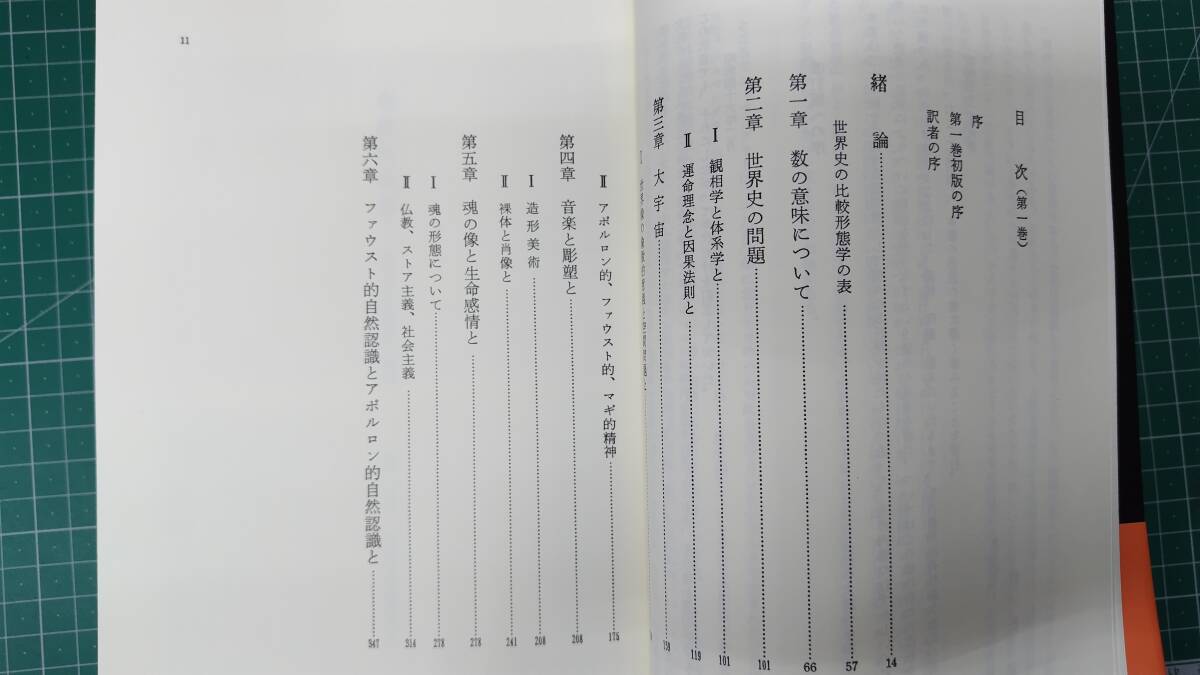 目次（第一巻）
序
第一巻初版の序
訳者の序
緒論……14
世界史の比較形態学の表……57
第一章 数の意味について……66
第二章 世界史の問題……101
Ⅰ 観相学と体系学と……101
Ⅱ 運命理念と因果法則と……119
第三章 大宇宙……159
Ⅱ アポルロン的、ファウスト的、マギ的精神……175
第四章 音楽と彫塑と……208
Ⅰ 造形美術……208
Ⅱ 裸体と肖像と……241
第五章 魂の像と生命感情と……278
Ⅰ 魂の形態について……278
Ⅱ 仏教、ストア主義、社会主義……314
第六章 ファウスト的自然認識とアポルロン的自然認識と……347
11